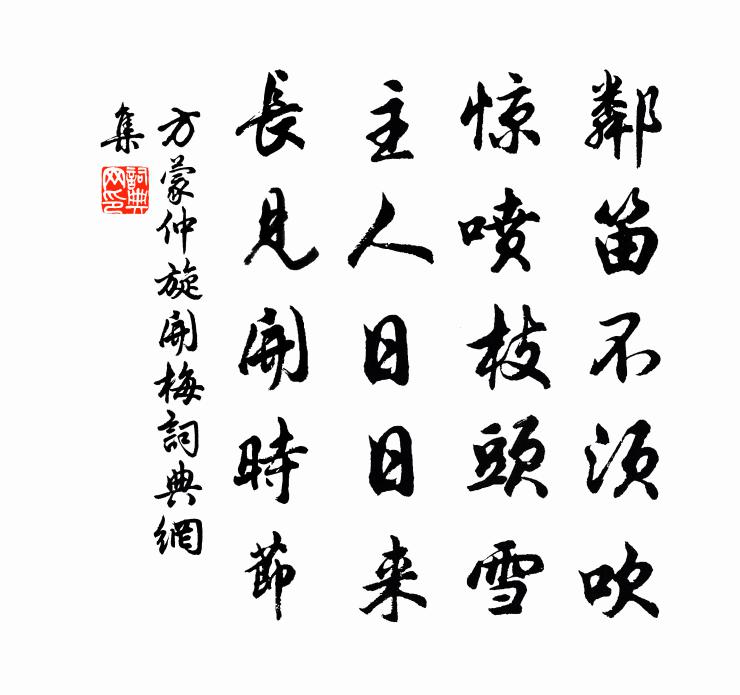 鄰笛不須吹
惊喷枝頭雪
主人日日来
長見開時節
方蒙仲旋開梅詞典網
集
詞典
网印